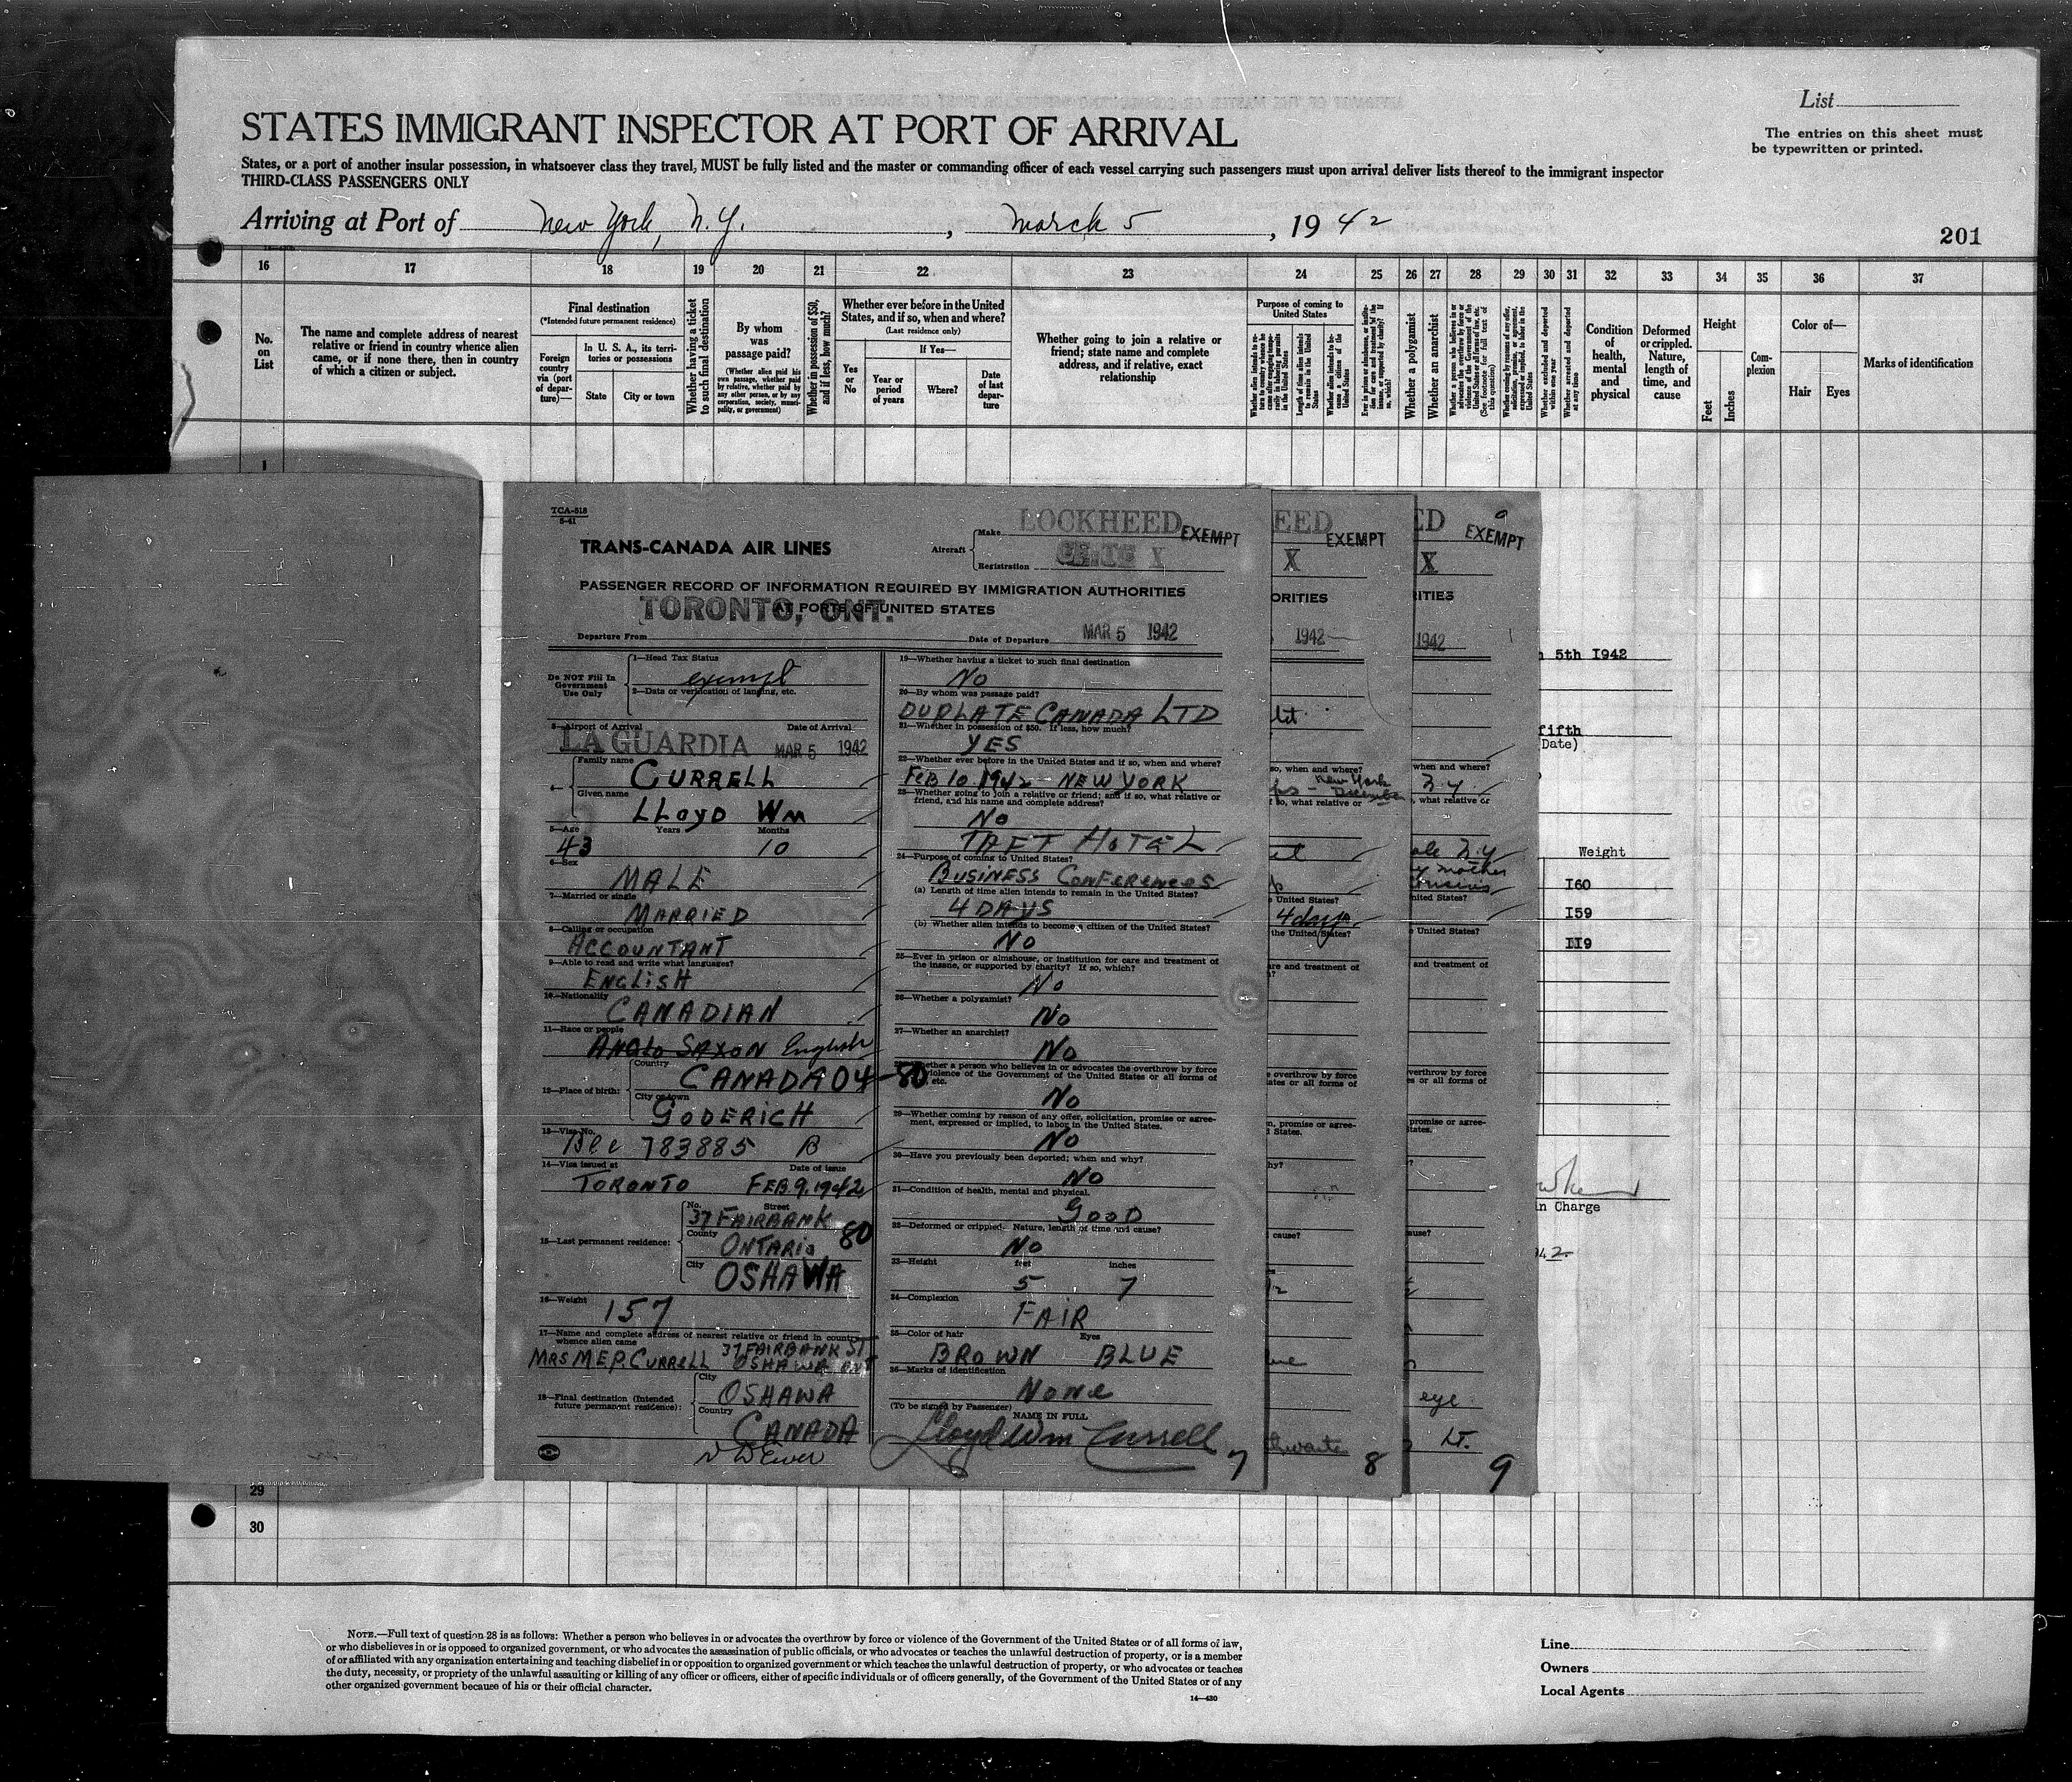 List
STATES IMMIGRANT INSPECTOR AT PORT OF ARRIVAL
The entries on this sheet must
be typewritten or printed.
States, or a port of another insular possession, in whatsoever class they travel, MUST be fully listed and the master or commanding officer of each vessel carrying such passengers must upon arrival deliver lists thereof to the immigrant inspector
THIRD-CLASS PASSENGERS ONLY
Arriving at Port of New York, N.Y., March 5, 1942
201
16 17 18 19 20 21 22 23 24 25 26 27 28 29 30 31 32 33 34 35 36 37
No.
on
List
The name and complete address of nearest
relative or friend in country whence alien
came, or if none there, then in country
of which a citizen or subject.
Final destination
(*Intended future permanent residence)
Foreign
country
via (port
of depar-
ture)—
In U. S. A., its terri-
tories or possessions
State
City or town
Whether having a ticket
to such final destination
By whom
was
passage paid?
(Whether alien paid his
own passage, whether paid
by relative, whether paid by
any other person, or by any
corporation, society, munici-
pality, or government)
Whether in possession of $50,
and if less, how much?
Whether ever before in the United
States, and if so, when and where?
(Last residence only)
Yes
or
No
If Yes—
Year or
period
of years
Where?
Date
of last
depar-
ture
Whether going to join a relative or
friend; state name and complete
address, and if relative, exact
relationship
Purpose of coming to
United States
Whether a polygamist
Whether an anarchist
Condition
of
health,
mental
and
physical
Deformed
or crippled.
Nature,
length of
time, and
cause
Height
Feet
Inches
Com-
plexion
Color of—
Hair
Eyes
Marks of identification
1
TCA-518
5-41
TRANS-CANADA AIR LINES
Aircraft
Make LOCKHEED EXEMPT
Registration X
PASSENGER RECORD OF INFORMATION REQUIRED BY IMMIGRATION AUTHORITIES
AT PORTS OF UNITED STATES
Departure From TORONTO, ONT.
Date of Departure MAR 5 1942
Do NOT Fill In
Government
Use Only
1—Head Tax Status
exempt
2—Data or verification of landing, etc.
3—Airport of Arrival Date of Arrival
LA GUARDIA MAR 5 1942
4—
Family name
CURRELL
Given name
LLOYD WM
5—Age Years Months
43 10
6—Sex
MALE
7—Married or single
MARRIED
8—Calling or occupation
ACCOUNTANT
9—Able to read and write what languages?
ENGLISH
10—Nationality
CANADIAN
11—Race or people
ANGLO SAXON English
12—Place of birth:
Country
CANADA 04-80
City or town
GODERICH
13—Visa No.
783885 B
14—Visa issued at Date of issue
TORONTO FEB 9, 1942
15—Last permanent residence:
No. Street
37 FAIRBANK
County
ONTARIO 80
City
OSHAWA
16—Weight
157
17—Name and complete address of nearest relative or friend in country
whence alien came
MRS M.E.P. CURRELL 37 FAIRBANK ST
OSHAWA ONT
18—Final destination (Intended
future permanent residence):
City
OSHAWA
Country
CANADA
19—Whether having a ticket to such final destination
NO
20—By whom was passage paid?
DUPLATE CANADA LTD
21—Whether in possession of $50. If less, how much?
YES
22—Whether ever before in the United States and if so, when and where?
FEB 10 1942 - NEW YORK
23—Whether going to join a relative or friend; and if so, what relative or
friend, and his name and complete address?
NO
TAFT HOTEL
24—Purpose of coming to United States?
BUSINESS CONFERENCES
(a) Length of time alien intends to remain in the United States?
4 DAYS
(b) Whether alien intends to become a citizen of the United States?
NO
25—Ever in prison or almshouse, or institution for care and treatment of
the insane, or supported by charity? If so, which?
NO
26—Whether a polygamist?
NO
27—Whether an anarchist?
NO
Whether a person who believes in or advocates the overthrow by force
violence of the Government of the United States or all forms of
etc.
NO
29—Whether coming by reason of any offer, solicitation, promise or agree-
ment, expressed or implied, to labor in the United States.
NO
30—Have you previously been deported; when and why?
NO
31—Condition of health, mental and physical.
GOOD
32—Deformed or crippled. Nature, length of time and cause?
NO
33—Height feet inches
5 7
34—Complexion
FAIR
35—Color of hair Eyes
BROWN BLUE
36—Marks of identification
NONE
(To be signed by Passenger)
NAME IN FULL
Lloyd Wm Currell
7
EED EXEMPT
X
ORITIES
1942
so, when and where?
New York
so, what relative or
United States?
4 days
the United States?
are and treatment of
overthrow by force
ates or all forms of
n, promise or agree-
States.
hy?
cause?
8
ED EXEMPT
X
ITIES
1942
when and where?
N.Y.
, what relative or
N.Y
mother
cousins
nited States?
United States?
and treatment of
verthrow by force
es or all forms of
promise or agree-
tates.
ause?
eye
9
5th I942
fifth
(Date)
Weight
I60
I59
II9
in Charge
29
30
NOTE.—Full text of question 28 is as follows: Whether a person who believes in or advocates the overthrow by force or violence of the Government of the United States or of all forms of law,
or who disbelieves in or is opposed to organized government, or who advocates the assassination of public officials, or who advocates or teaches the unlawful destruction of property, or is a member
of or affiliated with any organization entertaining and teaching disbelief in or opposition to organized government or which teaches the unlawful destruction of property, or who advocates or teaches
the duty, necessity, or propriety of the unlawful assaulting or killing of any officer or officers, either of specific individuals or of officers generally, of the Government of the United States or of any
other organized government because of his or their official character.
14—430
Line
Owners
Local Agents